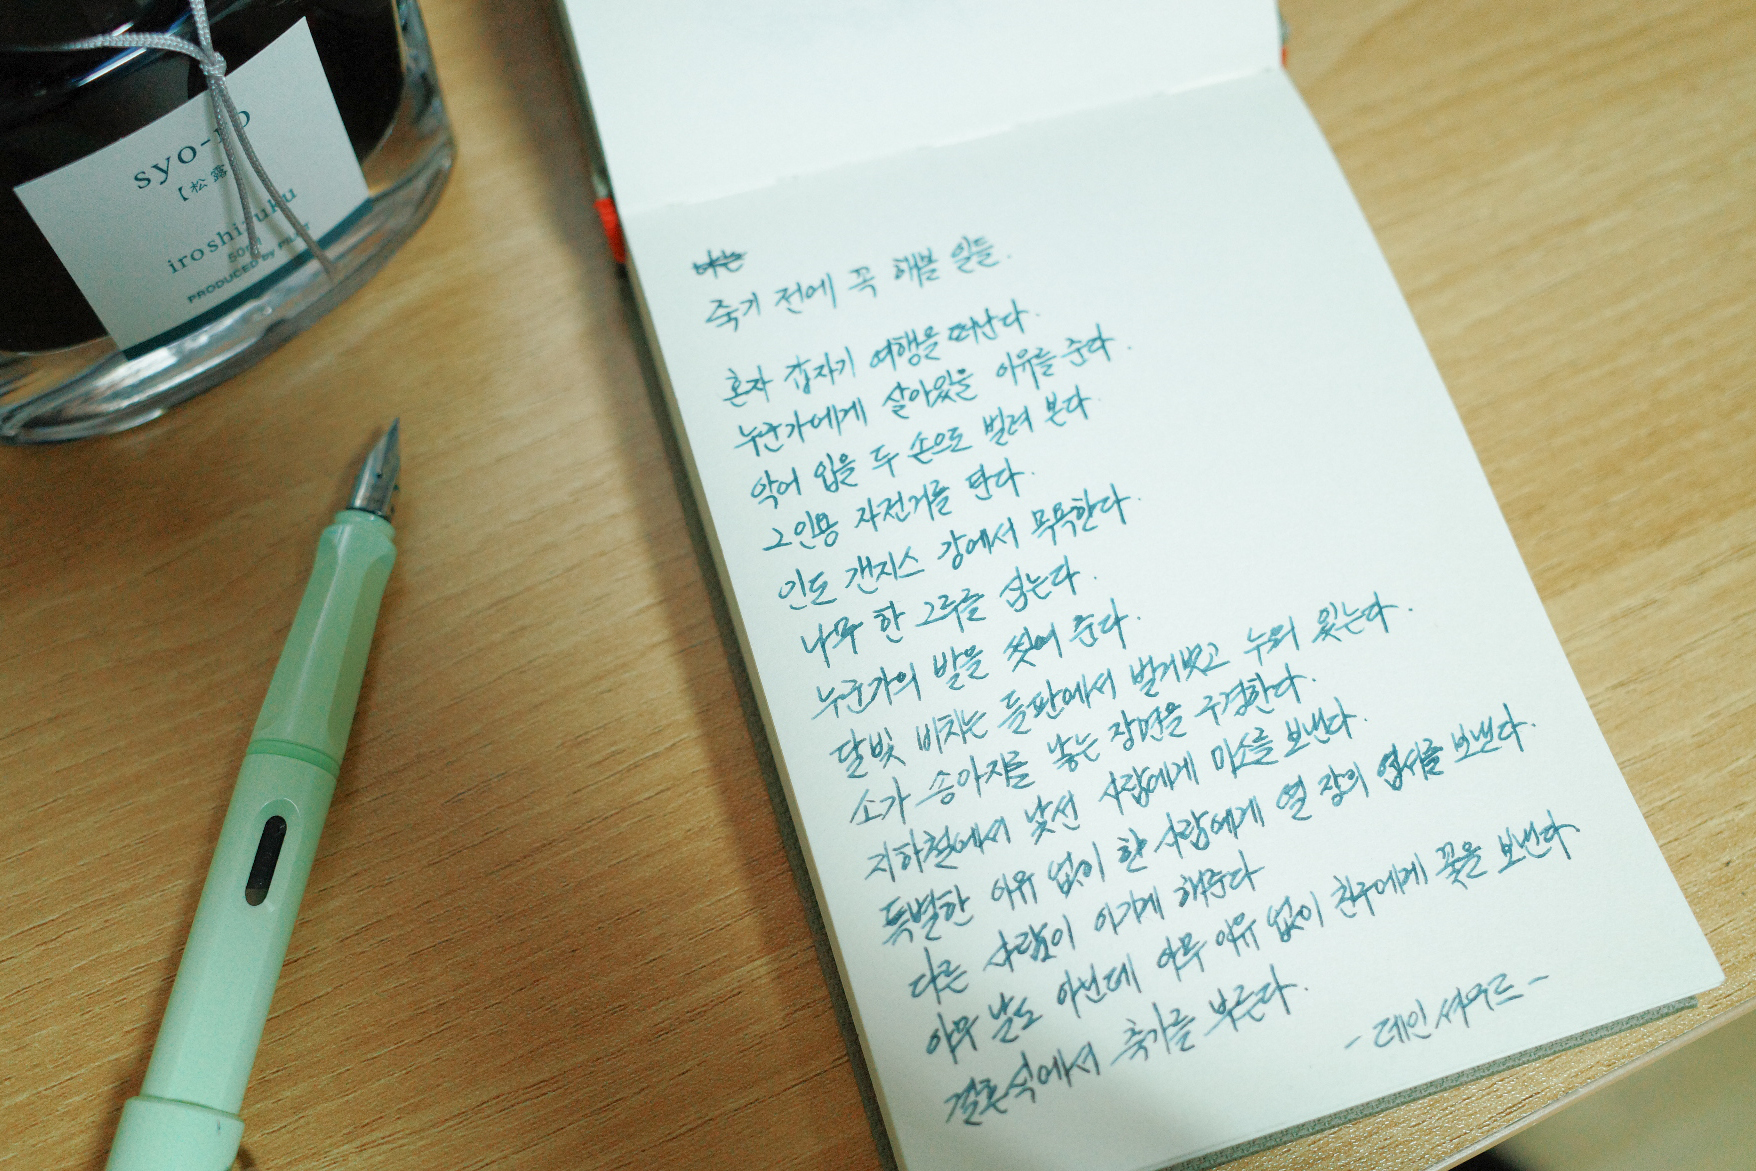 syo-ro
【松露
iroshizuku
50ml
PRODUCED by PILOT
나는
죽기 전에 꼭 해볼 일들.
혼자 갑자기 여행을 떠난다.
누군가에게 살아있을 이유를 준다.
악어 입을 두 손으로 벌려 본다.
2인용 자전거를 탄다.
인도 갠지스 강에서 목욕한다.
나무 한 그루를 심는다.
누군가의 발을 씻어 준다.
달빛 비치는 들판에서 벌거벗고 누워 있는다.
소가 송아지를 낳는 장면을 구경한다.
지하철에서 낯선 사람에게 미소를 보낸다.
특별한 이유 없이 한 사람에게 열 장의 엽서를 보낸다.
다른 사람이 이기게 해준다
아무 날도 아닌데 아무 이유 없이 친구에게 꽃을 보낸다.
결혼식에서 축가를 부른다.
- 데인 셔우드 -